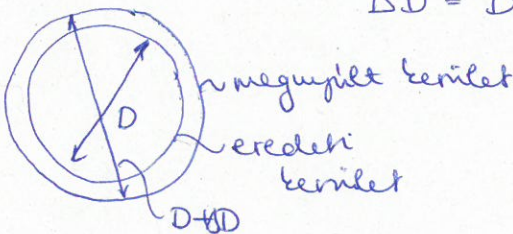 ΔD = D
megnyúlt kerület
D
eredeti
kerület
D+ΔD